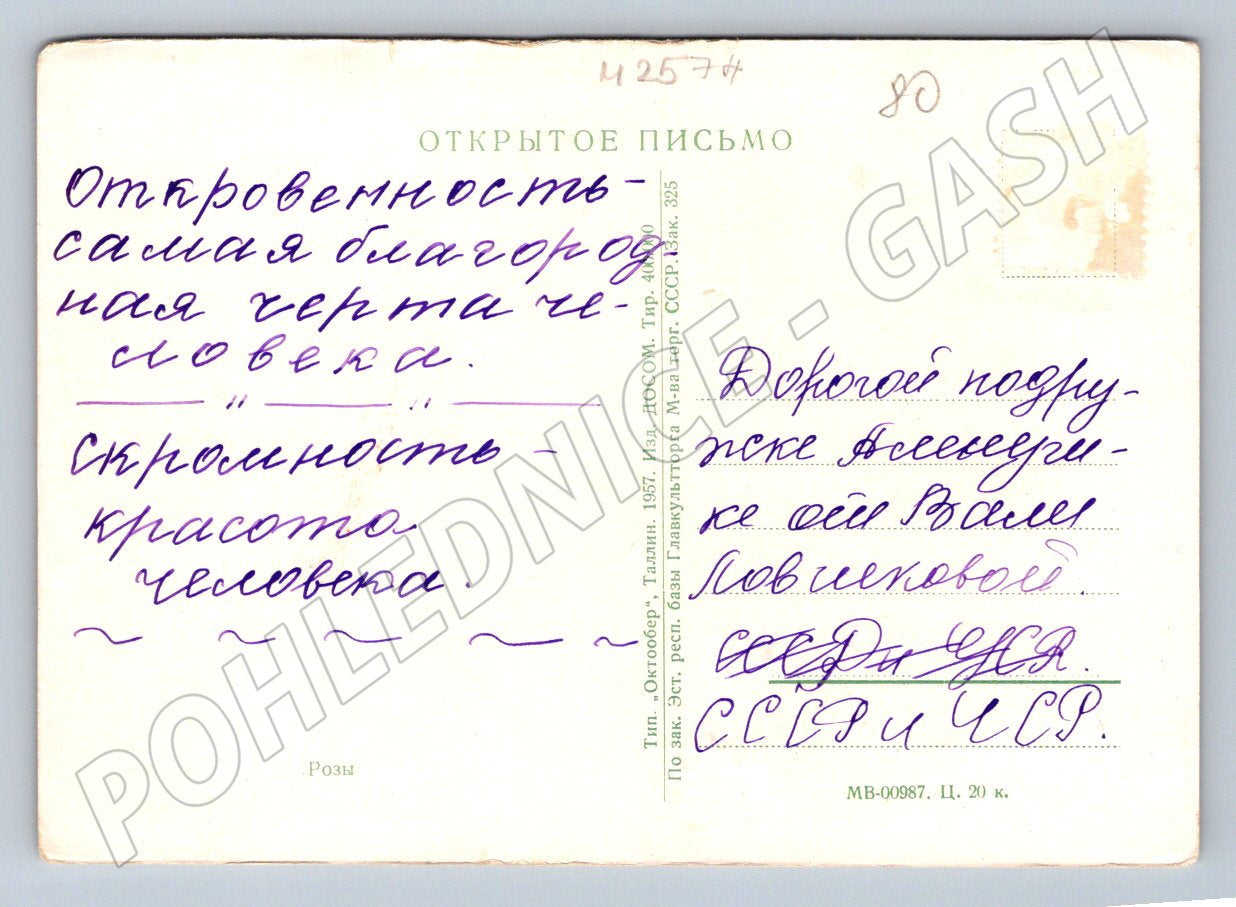 и 2574
80
ОТКРЫТОЕ ПИСЬМО
Откровенность -
самая благород
ная черта че-
ловека.
— " — " —
Скромность -
красота
человека.
Розы
Тип. „Октообер“, Таллин. 1957. Изд. ДОСОМ. Тир. 400.000
По зак. Эст. респ. базы Главкультторга М-ва торг. СССР. Зак. 325
Дорогой подру-
жке Аленуш-
ке от Вали
Новиковой.
СССР и ЧСР.
МВ-00987. Ц. 20 к.
POHLEDNICE - GASH